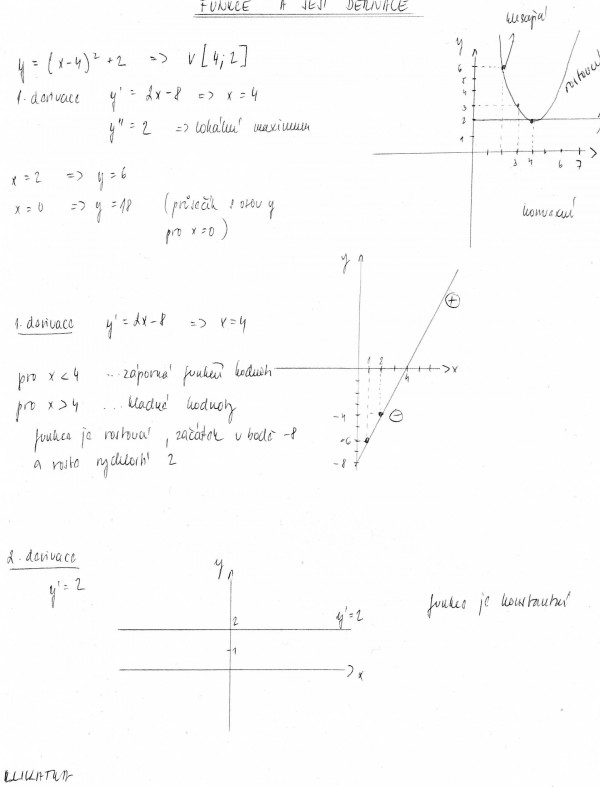 FUNKCE A JEJÍ DERIVACE
y = (x-4)² + 2 => V[4;2]
1. derivace y' = 2x-8 => x=4
y'' = 2 => lokální maximum
x=2 => y=6
x=0 => y=18 (průsečík s osou y
pro x=0)
klesající
rostoucí
y
6
5
4
3
2
1
3 4 6 7
konvexní
1. derivace y' = 2x-8 => x=4
pro x<4 ...záporné funkční hodnoty
pro x>4 ...kladné hodnoty
funkce je rostoucí, začátek v bodě -8
a roste rychlostí 2
y
+
1 2 4 x
-4 -
-6
-8
2. derivace
y' = 2
y
2 y'=2
1
x
funkce je konstantní